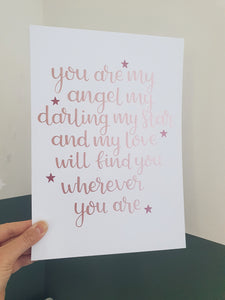 you are my
angel my
darling my star
and my love
will find you
wherever
you are